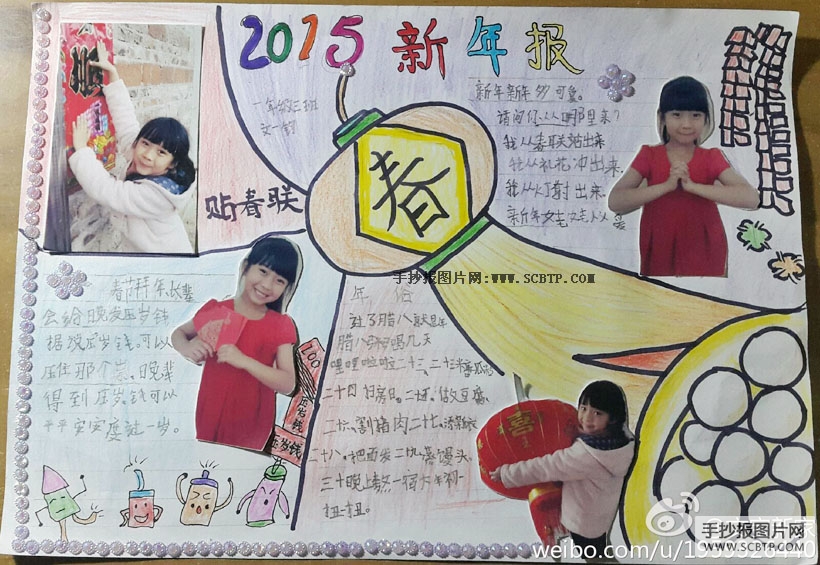 2015 新年报
春
一年级三班
贴春联
新年新年多可爱。
请问你从哪里来?
我从春联站出来
我从礼花冲出来
我从灯射出来
春
手抄报图片网:www.SCBTP.COM
春节拜年,长辈
会给晚辈压岁钱
据说压岁钱可以
压住那个祟,晚辈
得到压岁钱可以
平平安安度过一岁。
100
压岁钱
压岁钱
年俗
过了腊八就是年
腊八粥喝几天
哩哩啦啦二十三、二十三糖瓜粘
二十四扫房日。二十五、做豆腐、
二十六、割猪肉二十七、
二十八、把面发二十九蒸馒头、
三十晚上熬一宿大年初一
扭一扭。
囍
手抄报图片网
www.SCBTP.COM